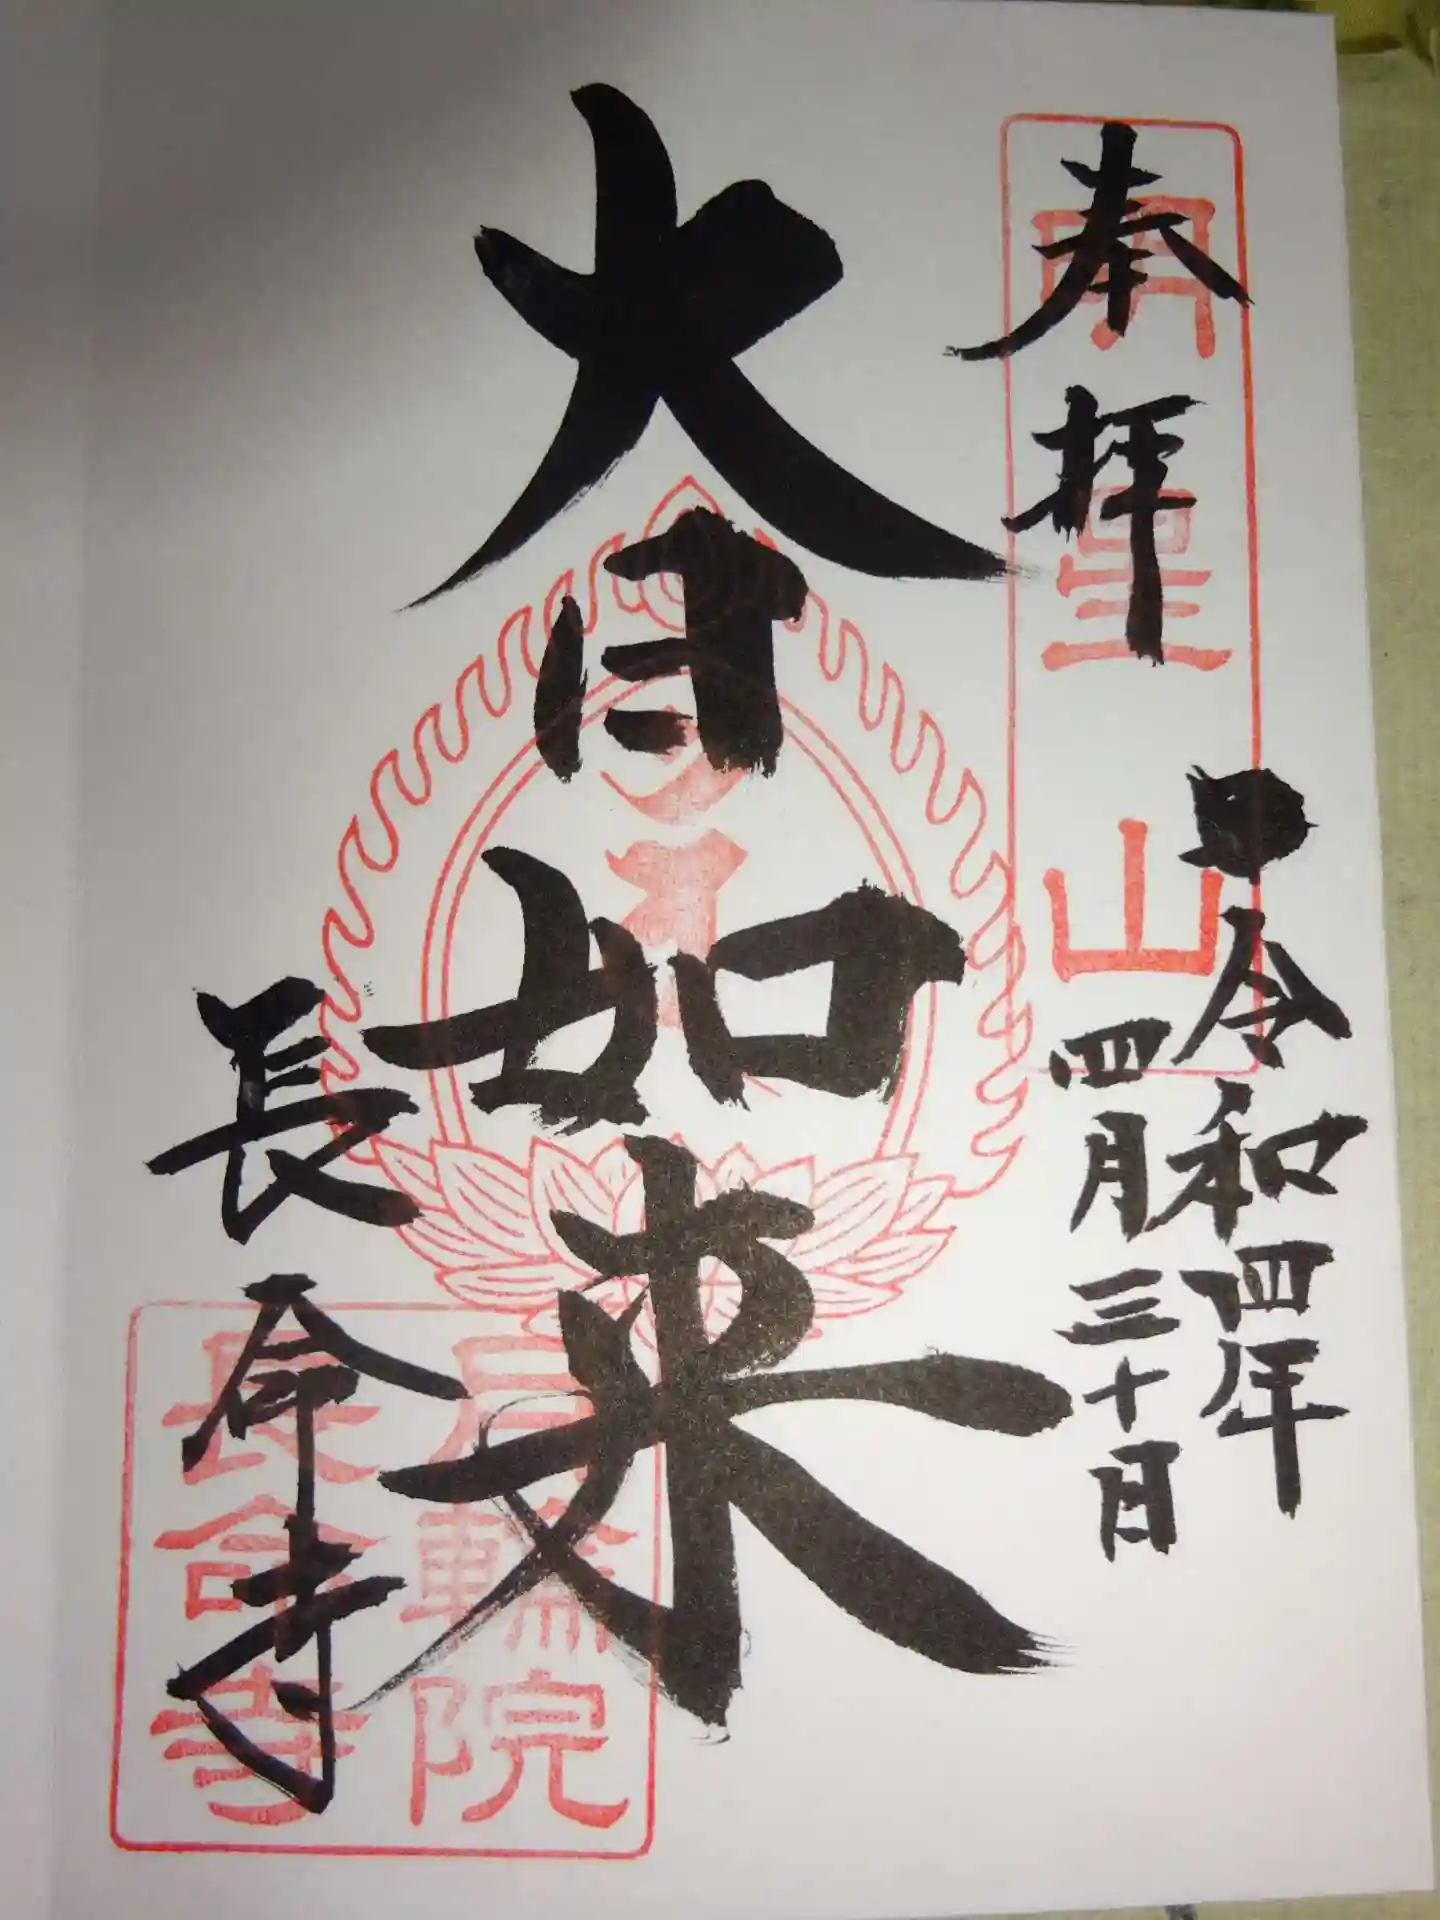 奉拝
明星山
令和四年
四月三十日
大日如来
長命寺
月輪院
長命寺